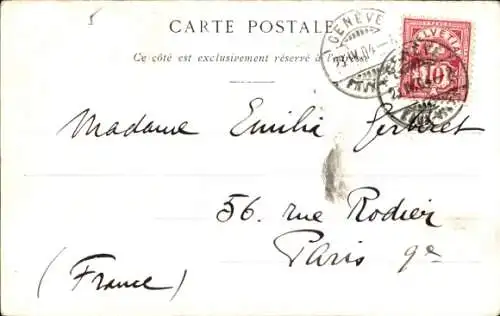 5
CARTE POSTALE
Ce côté est exclusivement réservé à l'
GENÈVE
HELVETIA
10
Madame Emilia
56. rue Rodier
Paris 9e
(France)